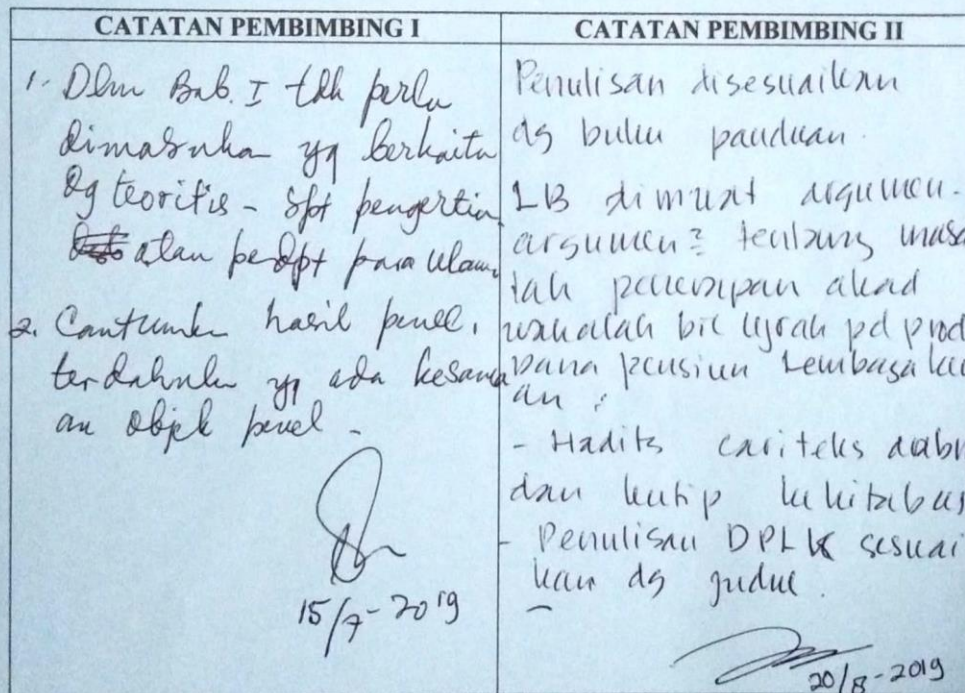 CATATAN PEMBIMBING I
1. Dlm Bab. I tdk perlu
dimasuka yg berkaita
dg teoritis - spt pengertia
atau pendpt para ulama
2. Cantumka hasil penel.
terdahulu yg ada kesama
an objek penel -
15/7-2019
CATATAN PEMBIMBING II
Penulisan disesuaikan
dg buku panduan.
LB dimuat argumen-
argumen2 tentang masa
lah penerapan akad
wakalah bil ujrah pd prod
Dana pensiun Lembaga keu
an :
- Hadits cari teks arabn
dan kutip ke kitab as
- Penulisan DPLK sesuai
kan dg judul.
20/8-2019